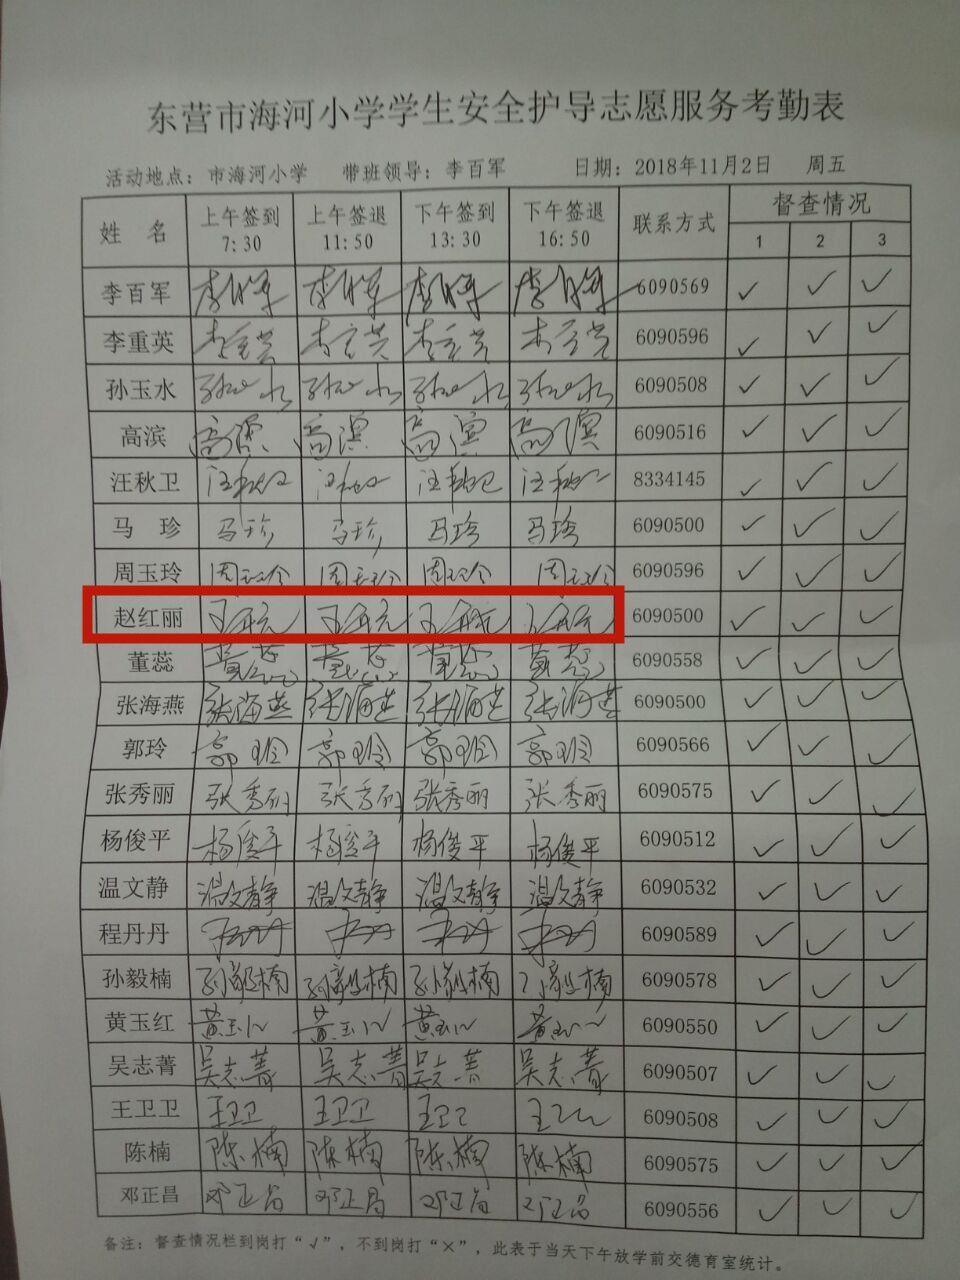 东营市海河小学学生安全护导志愿服务考勤表
活动地点：市海河小学 带班领导：李百军 日期：2018年11月2日 周五
姓 名 上午签到 7:30 上午签退 11:50 下午签到 13:30 下午签退 16:50 联系方式 督查情况 1 2 3
李百军 6090569 ✓ ✓ ✓
李重英 李重英 李重英 李重英 李重英 6090596 ✓ ✓ ✓
孙玉水 孙玉水 孙玉水 孙玉水 孙玉水 6090508 ✓ ✓ ✓
高滨 高滨 高滨 高滨 高滨 6090516 ✓ ✓ ✓
汪秋卫 汪秋卫 汪秋卫 汪秋卫 汪秋卫 8334145 ✓ ✓ ✓
马 珍 马珍 马珍 马珍 马珍 6090500 ✓ ✓ ✓
周玉玲 周玉玲 周玉玲 周玉玲 周玉玲 6090596 ✓ ✓ ✓
赵红丽 6090500 ✓ ✓ ✓
董蕊 董蕊 董蕊 董蕊 董蕊 6090558 ✓ ✓ ✓
张海燕 张海燕 张海燕 张海燕 张海燕 6090500 ✓ ✓ ✓
郭玲 郭玲 郭玲 郭玲 郭玲 6090566 ✓ ✓ ✓
张秀丽 张秀丽 张秀丽 张秀丽 张秀丽 6090575 ✓ ✓ ✓
杨俊平 杨俊平 杨俊平 杨俊平 杨俊平 6090512 ✓ ✓ ✓
温文静 温文静 温文静 温文静 温文静 6090532 ✓ ✓ ✓
程丹丹 6090589 ✓ ✓ ✓
孙毅楠 孙毅楠 孙毅楠 孙毅楠 孙毅楠 6090578 ✓ ✓ ✓
黄玉红 黄玉红 黄玉红 黄玉红 黄玉红 6090550 ✓ ✓ ✓
吴志菁 吴志菁 吴志菁 吴志菁 吴志菁 6090507 ✓ ✓ ✓
王卫卫 王卫卫 王卫卫 王卫卫 王卫卫 6090508 ✓ ✓ ✓
陈楠 陈楠 陈楠 陈楠 陈楠 6090575 ✓ ✓ ✓
邓正昌 邓正昌 邓正昌 邓正昌 邓正昌 6090556 ✓ ✓ ✓
备注：督查情况栏到岗打“√”，不到岗打“×”，此表于当天下午放学前交德育室统计。